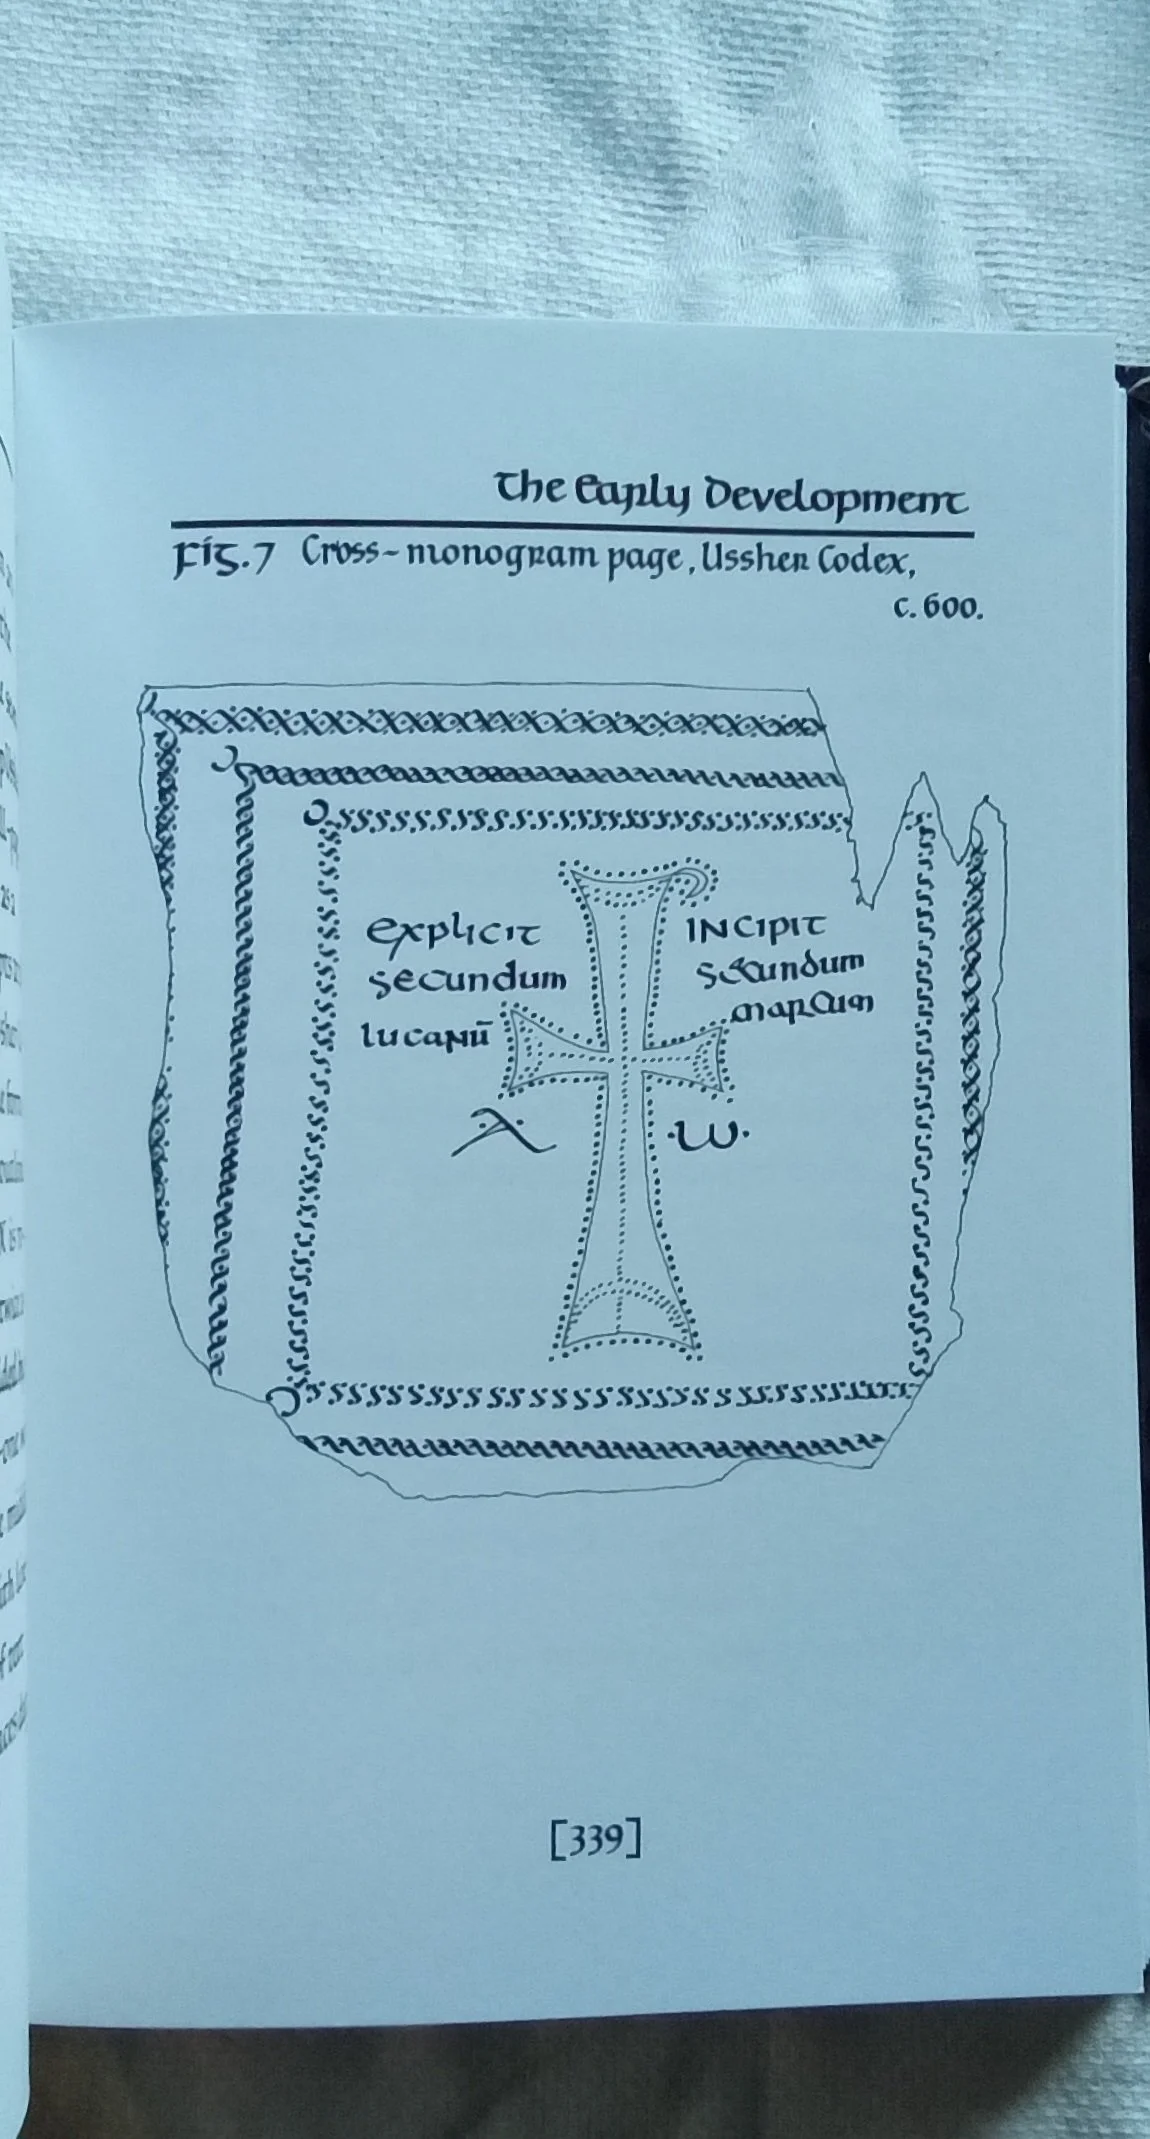 The Early Development
Fig. 7 Cross-monogram page, Ussher Codex,
c. 600.
explicit
secundum
lucanū
INCIPIT
secundum
marcum
A
·ω·
[339]